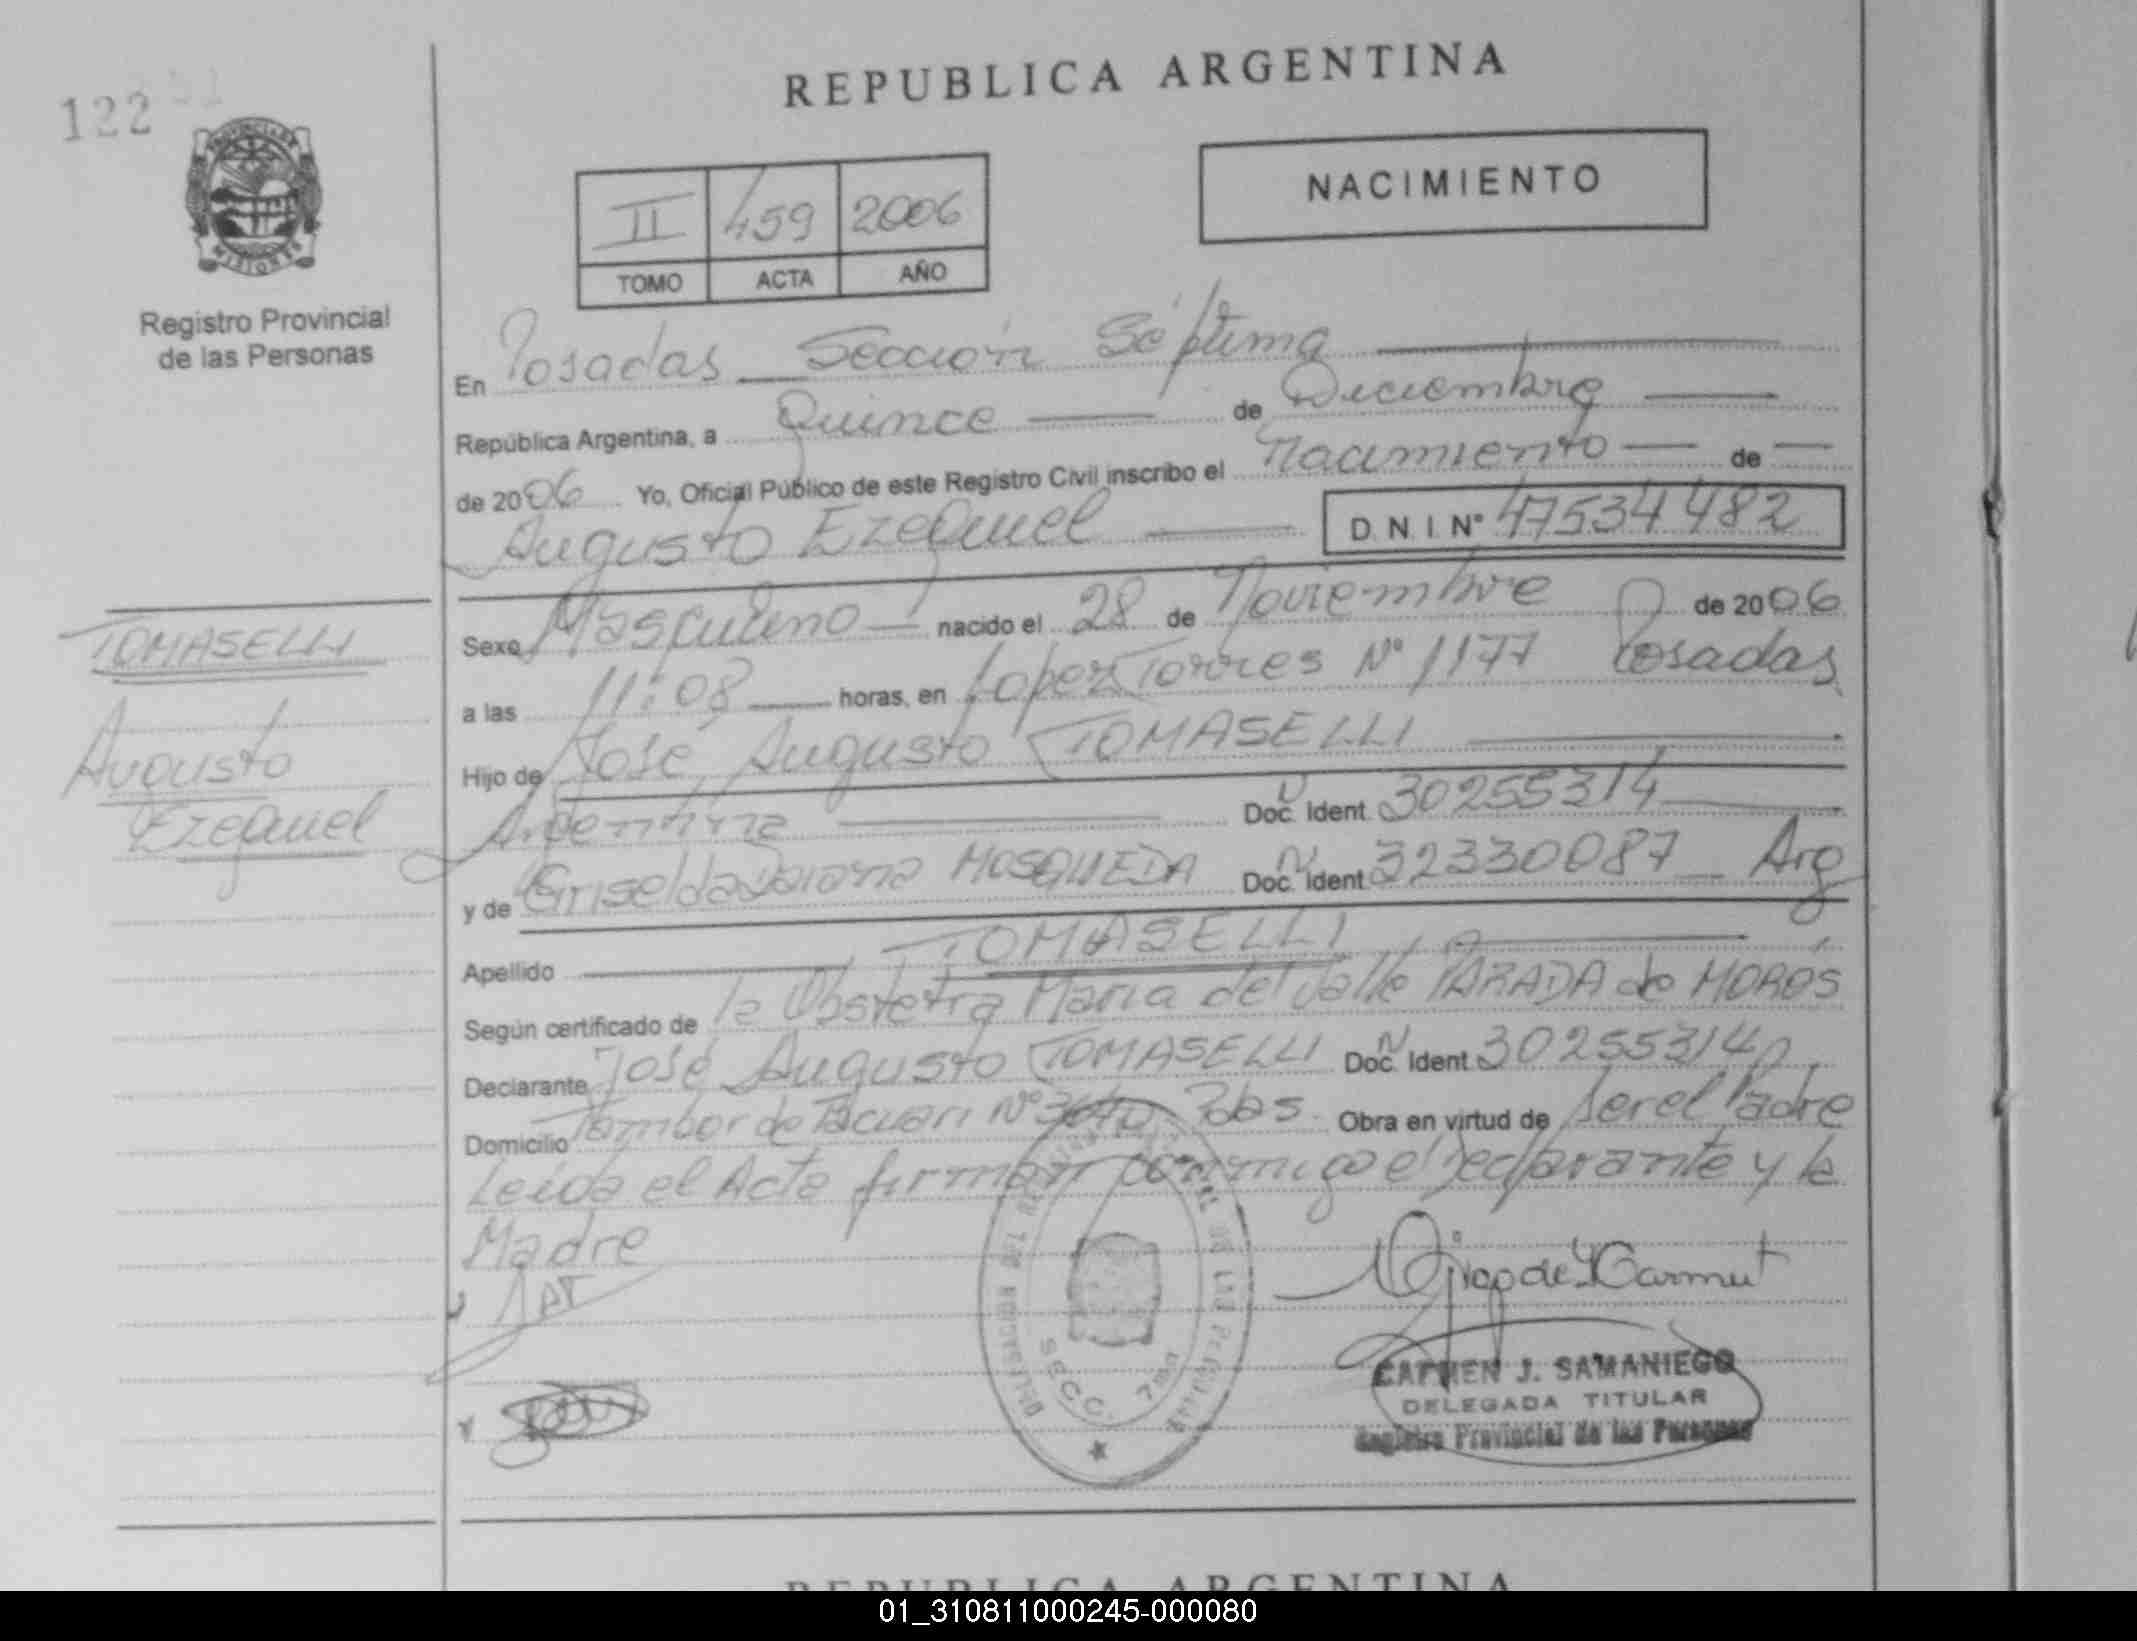 122
REPUBLICA ARGENTINA
PROVINCIA DE
MISIONES
Registro Provincial
de las Personas
II 459 2006
TOMO ACTA AÑO
NACIMIENTO
En Posadas Sección Séptima
República Argentina, a Quince de Diciembre
de 2006 Yo, Oficial Público de este Registro Civil inscribo el Nacimiento de
Augusto Ezequiel D.N.I. N° 47534482
TOMASELLI
Augusto
Ezequiel
Sexo Masculino nacido el 28 de Noviembre de 2006
a las 11:08 horas, en Lopez Torres N° 1177 Posadas
Hijo de José Augusto TOMASELLI
Argentina Doc. Ident. 30255314
y de Griselda Daiana MOSQUEDA Doc. Ident. 32330087 Arg
Apellido TOMASELLI
Según certificado de la Obstetra Maria del Valle PARADA de MOROS
Declarante José Augusto TOMASELLI Doc. Ident 30255314
Domicilio Tambor de Tacuari N° Pdas Obra en virtud de ser el Padre
Leida el Acta firman conmigo el Declarante y la
Madre
SECC. 7ma
CARMEN J. SAMANIEGO
DELEGADA TITULAR
Registro Provincial de las Personas
REPUBLICA ARGENTINA
01_310811000245-000080